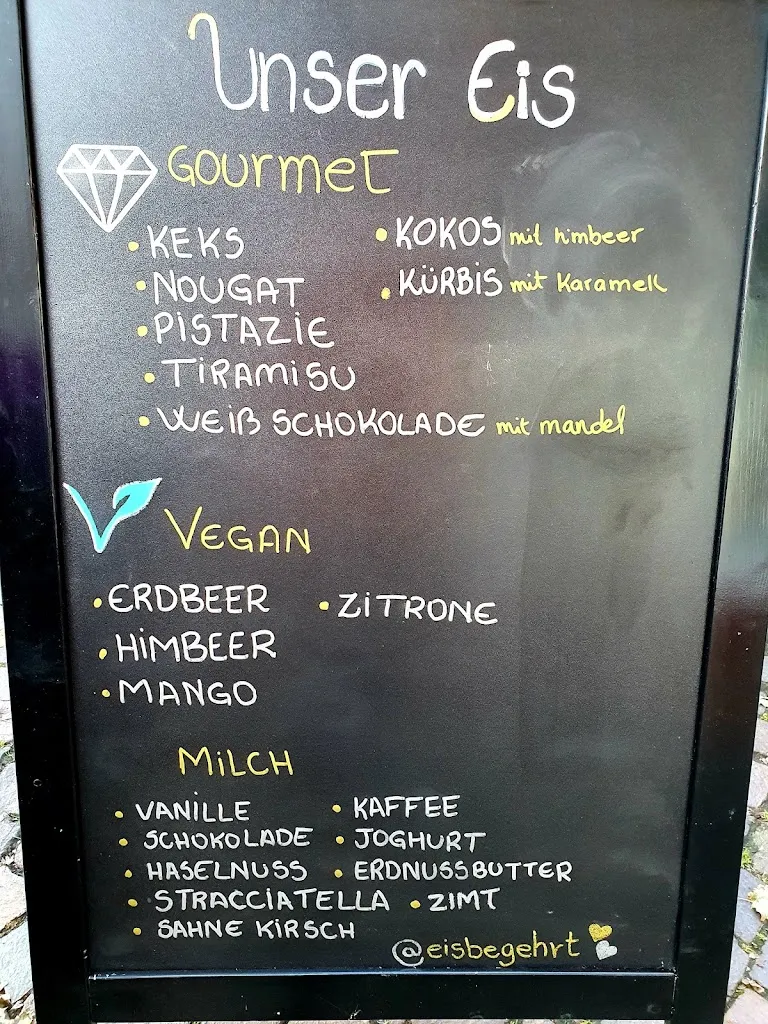 Unser Eis
GOURMET
• KEKS
• NOUGAT
• PISTAZIE
• TIRAMISU
• WEIß SCHOKOLADE mit mandel
• KOKOS mit himbeer
• KÜRBIS mit Karamell
VEGAN
• ERDBEER
• HIMBEER
• MANGO
• ZITRONE
MILCH
• VANILLE
• SCHOKOLADE
• HASELNUSS
• STRACCIATELLA
• SAHNE KIRSCH
• KAFFEE
• JOGHURT
• ERDNUSSBUTTER
• ZIMT
@eisbegehrt